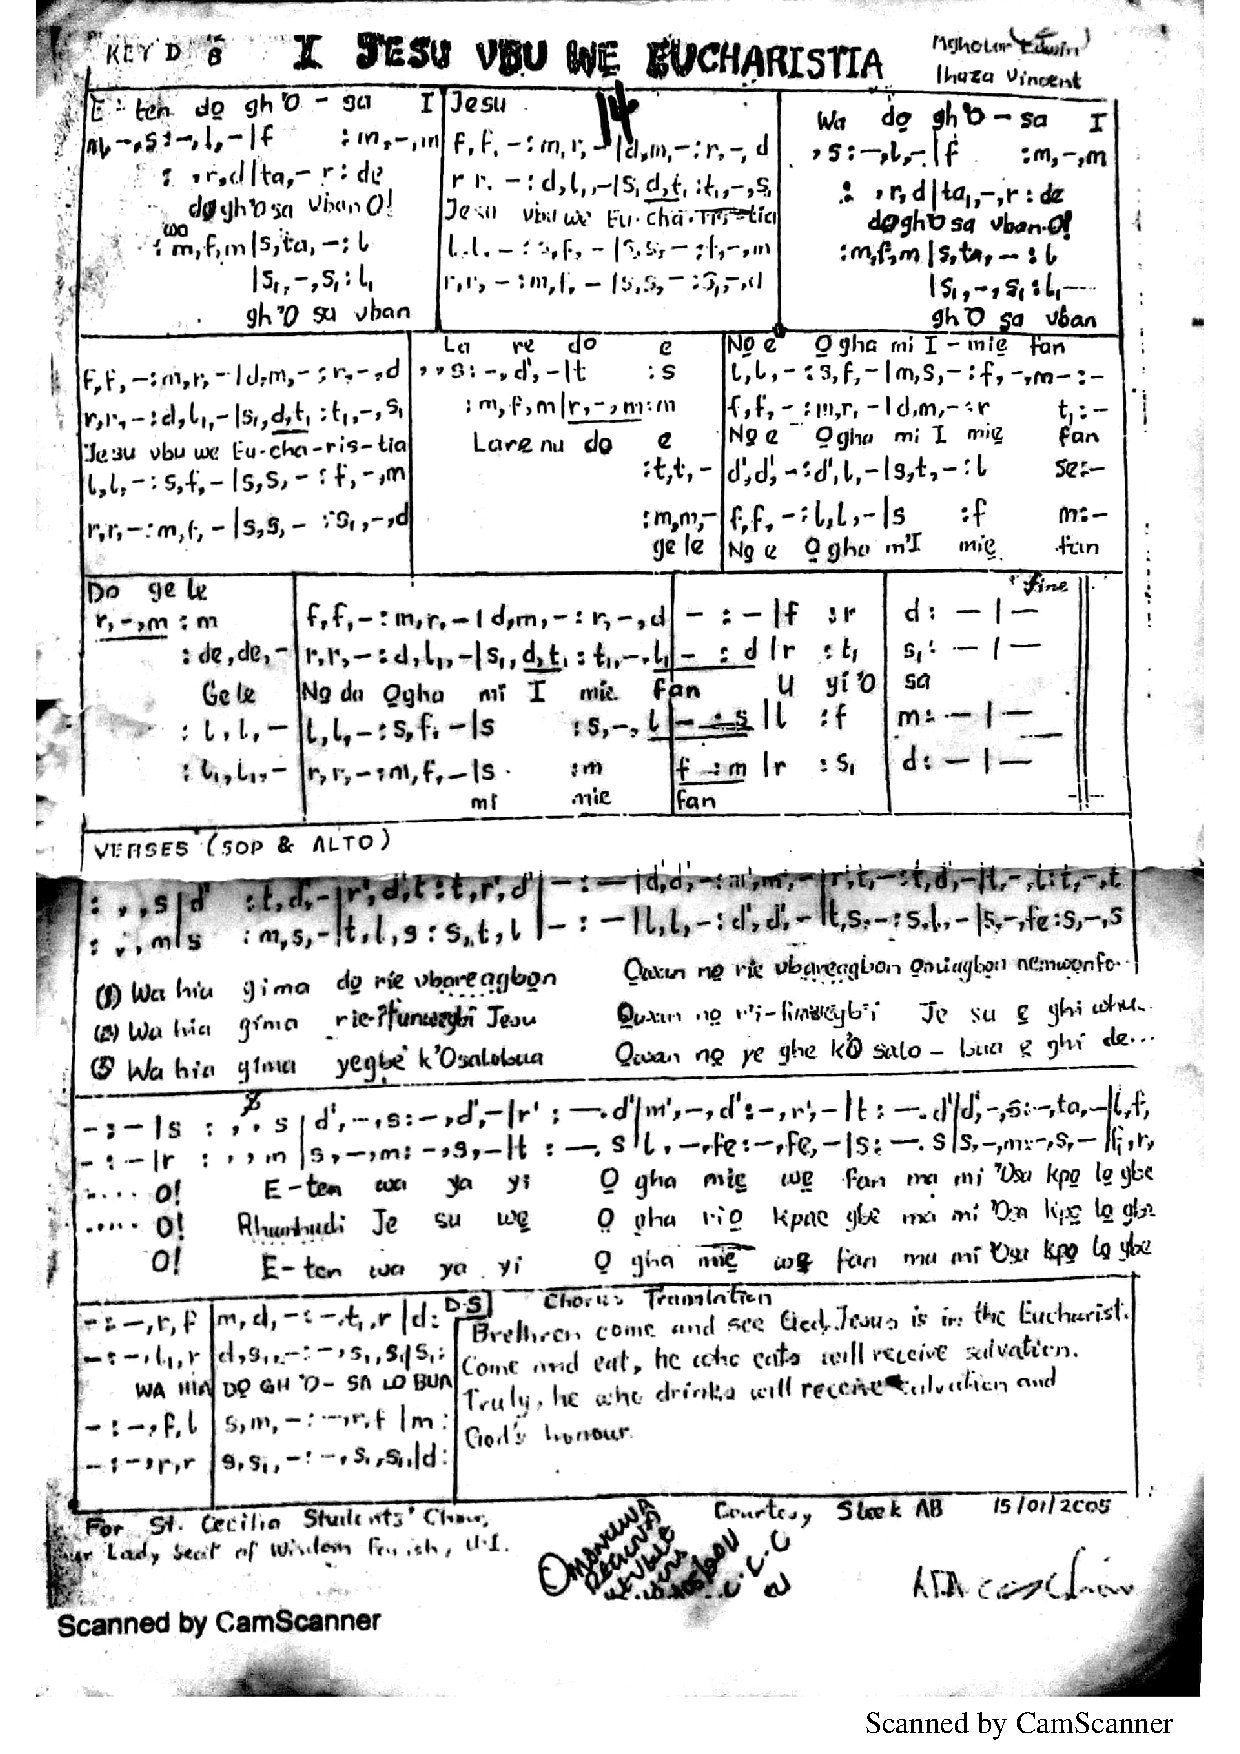 KEY D 6/8 I JESU VBU WE EUCHARISTIA Mgholor (Edwin)
Ihaza Vincent
14
E - ten do gh'O - sa I
: ,r,d|ta,- r : de
dogh'O sa vban O!
wa
: m,f,m|s,ta, - : l
|s₁,-,s₁ : l₁
gh'O sa vban
Jesu
f,f,-:m,r,-|d,m,-:r,-,d
r r. -:d,l₁,-|s₁ d,t₁ :t₁,-,s₁
Jesu vbu we Eu-cha-ris-tia
l,l,-:s,f,-|s,s,-:f,-,m
r,r,-:m,f,-|s,s,-:s₁,-,d
Wa do gh'O - sa I
,s:-,l,-|f :m,-,m
: ,r,d|ta₁,-,r : de
dogh'O sa vban-O!
:m,f,m|s,ta,-:l
|s₁,-,s₁:l₁
gh'O sa vban
f,f,-:m,r,-|d,m,-:r,-,d
r,r,-:d,l₁,-|s₁,d,t₁:t₁,-,s₁
Jesu vbu we Eu-cha-ris-tia
l,l,-:s,f,-|s,s,-:f,-,m
r,r,-:m,f,-|s,s,-:s₁,-,d
La re do e
,,s:-,d',-|t :s
:m,f,m|r,-,m:m
Lare nu do e
:t,t,-
:m,m,-
ge le
No e Ogha mi I - mie fan
l,l,-:s,f,-|m,s,-:f,-,m-:-
f,f,-:m,r,-|d,m,-:r t₁:-
No e Ogha mi I mie fan
d',d',-:d',l,-|s,t,-:l se:-
f,f,-:l,l,-|s :f m:-
No e Ogha m'I mie fan
Do ge le
r,-,m : m
: de,de,-
Ge le
: l,l,-
: l₁,l₁,-
fine
f,f,-:m,r,-|d,m,-:r,-,d - : - |f :r d: - | -
r,r,-:d,l₁,-|s₁,d,t₁:t₁,-,l₁ - : d |r :t₁ s₁: - | -
No da Ogha mi I mie fan U yi'O sa
l,l,-:s,f,-|s :s,-,l - : s |l :f m: - | -
r,r,-:m,f,-|s :m f :m |r :s₁ d: - | -
mi mie fan
VERSES (SOP & ALTO)
: , ,s|d' :t,d,-|r',d',t:t,r',d'|-:-|d',d',-:m',m',-|r',t,-:t,d,-|t,-,l:t,-,t
: , ,m|s :m,s,-|t,l,s:s,t,l|-:-|l,l,-:d',d',-|t,s,-:s,l,-|s,-,fe:s,-,s
(1) Wa hia gima do rie vbareagbon Oxan no rie vbareagbon
(2) Wa hia gima Jesu Oxan no Je su e ghi
(3) Wa hia gima yegbe k'Osalobua Oxan no ye ghe k'O salo - bua e ghi de...
-:-|s : , ,s|d',-,s:-,d',-|r' : -.d'|m',-,d':-,r',-|t : -.d'|d',-,s:-,ta,-|l,f,
-:-|r : , ,m|s,-,m:-,s,-|t : -.s|l,-,fe:-,fe,-|s:-.s|s,-,m:-,s,-|f,r,
..... O! E-ten wa ya yi O gha mie we fan ma mi 'Osa kpo lo gbe
..... O! Je su we O gha rio kpae gbe ma mi 'Osa kpo lo gbe
O! E-ten wa ya yi O gha mie we fan ma mi 'Osa kpo lo gbe
-:-,r,f |m,d,-:-,t₁,r|d: D.S
-:-,l₁,r |d,s₁,-:-,s₁,s₁|s₁:
WA HIA DO GH'O- SA LO BUA
-:-,f,l |s,m,-:-,r,f|m:
-:-,r,r |s,s₁,-:-,s₁,s₁|d:
Chorus Translation
Brethren come and see God, Jesus is in the Eucharist.
Come and eat, he who eats will receive salvation.
Truly, he who drinks will receive salvation and
God's honour.
For St. Cecilia Students' Choir,
Our Lady Seat of Wisdom Parish, U.I.
Courtesy Sleek AB 15/01/2005
C.C.C
Scanned by CamScanner
Scanned by CamScanner